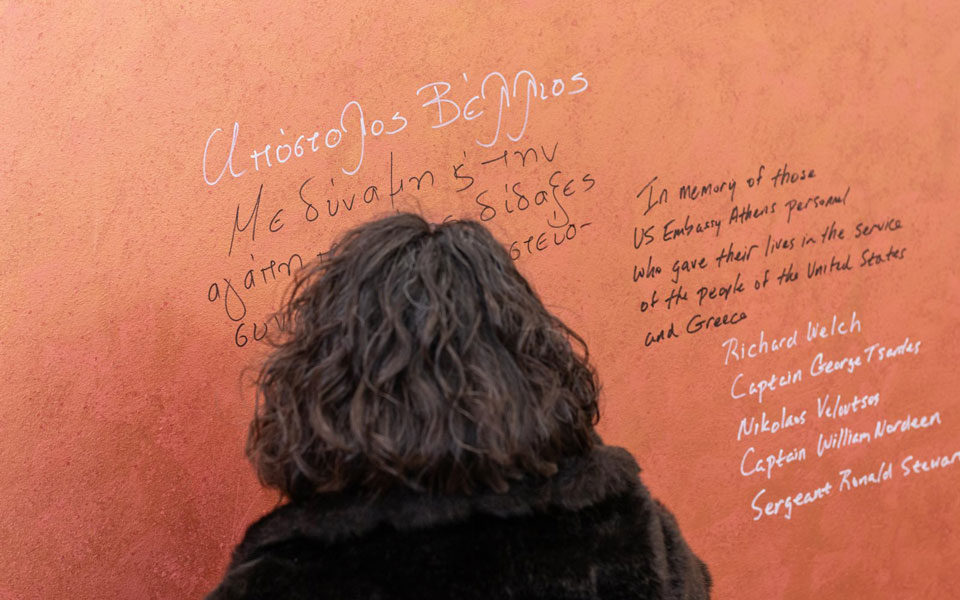 Απόστολος Βέλλιος
Με δύναμη & την
αγάπη
δίδαξες
In memory of those
US Embassy Athens personnel
who gave their lives in the service
of the people of the United States
and Greece
Richard Welch
Captain George Tsantes
Nikolaos Veloutsos
Captain William Nordeen
Sergeant Ronald Stewart